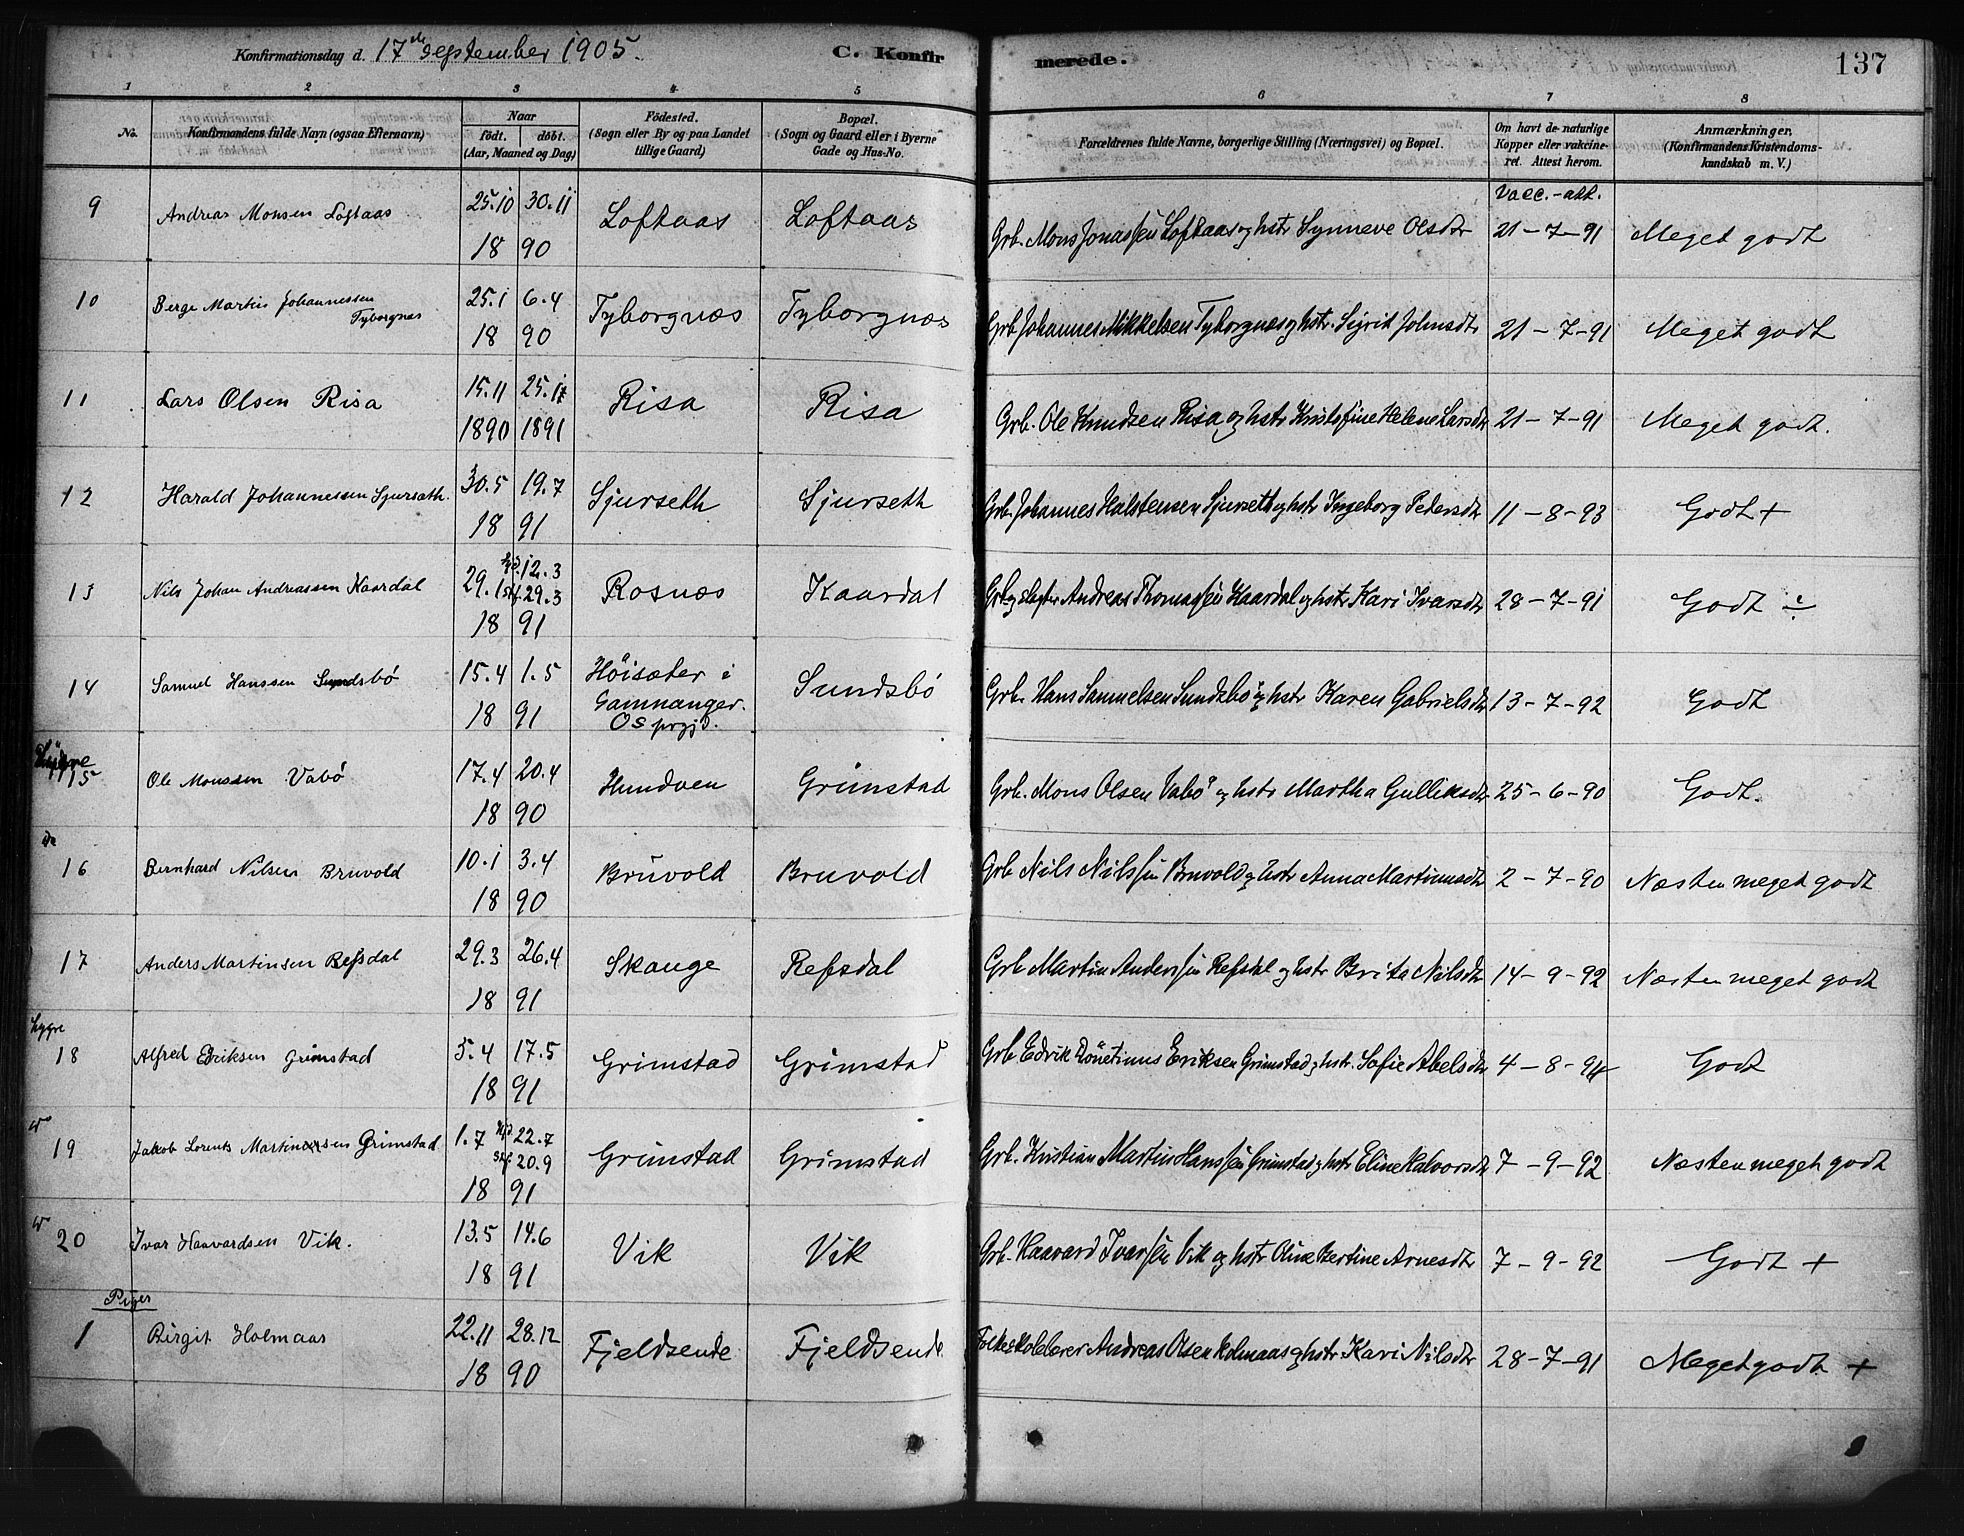 Konfirmationsdag d. 17de September 1905. C. Konfirmerede. 137
1 2 3 4 5 6 7 8
No. Konfirmandens fulde Navn (ogsaa Efternavn) Naar født. døbt. (Aar, Maaned og Dag) Fødested. (Sogn eller By og paa Landet tillige Gaard) Bopæl. (Sogn og Gaard eller i Byerne Gade og Hus-No. Forældrenes fulde Navne, borgerlige Stilling (Næringsvei) og Bopæl. Om havt de naturlige Kopper eller vakcineret. Attest herom. Anmærkninger, (Konfirmandens Kristendomskundskab m. V.)
Vacc.-att.
9 Andreas Monsen Loftaas 25.10 30.11 1890 Loftaas Loftaas Grb. Mons Jonassen Loftaas og hstr Synneve Olsdtr 21-7-91 Meget godt
10 Berge Martin Johannessen Tyborgnæs 25.1 6.4 1890 Tyborgnæs Tyborgnæs Grb. Johannes Mikkelsen Tyborgnæs og hstr. Sigrid Johnsdtr 21-7-91 Meget godt
11 Lars Olsen Risa 15.11 1890 25.1 1891 Risa Risa Grb. Ole Knudsen Risa og hstr Kristofine Helene Larsdtr 21-7-91 Meget godt.
12 Harald Johannessen Sjursæth. 30.5 19.7 1891 Sjurseth Sjurseth Grb. Johannes Halstensen Sjurseth og hstr Ingeborg Pedersdtr 11-8-93 Godt +
13 Nils Johan Andreassen Haardal 29.1 12.3 29.3 1891 Rosnæs Haardal Grb og slagter Andreas Thomassen Haardal og hstr Kari Ivarsdtr 28-7-91 Godt ÷
14 Samuel Hanssen Sundsbö 15.4 1.5 1891 Höisæter i Samnanger. Os prgjd. Sundsbö Grb. Hans Samuelsen Sundsbö og hstr Karen Gabrielsdtr 13-7-92 Godt
15 Ole Monssen Vabö 17.4 20.4 1890 Hundven Grimstad Grb. Mons Olsen Vabö og hstr Martha Gulliksdtr 25-6-90 Godt.
16 Bernhard Nilsen Bruvold 10.1 3.4 1890 Bruvold Bruvold Grb Nils Nilssen Bruvold og hstr Anna Martinusdtr 2-7-90 Næsten meget godt
17 Anders Martinsen Refsdal 29.3 26.4 1891 Skauge Refsdal Grb Martin Anderssen Refsdal og hstr Brita Nilsdtr 14-9-92 Næsten meget godt
Lygre
18 Alfred Edriksen Grimstad 5.4 17.5 1891 Grimstad Grimstad Grb Edrik Eriksen Grimstad og hstr. Sofie Abelsdtr 4-8-94 Godt
19 Jakob Lorents Martinsen Grimstad 1.7 22.7 20.9 1891 Grimstad Grimstad Grb. Kristian Martin Hanssen Grimstad og hstr Eline Halvorsdtr 7-9-92 Næsten meget godt
20 Ivar Haavardsen Vik. 13.5 14.6 1891 Vik Vik Grb. Haavard Ivarssen Vik og hstr Oline Bertine Arnesdtr 7-9-92 Godt +
Piger
1 Birgit Holmaas 22.11 28.12 1890 Fjeldsende Fjeldsende Folkeskolelærer Andreas Olsen Holmaas og hstr Kari Nilsdtr 28-7-91 Meget godt +